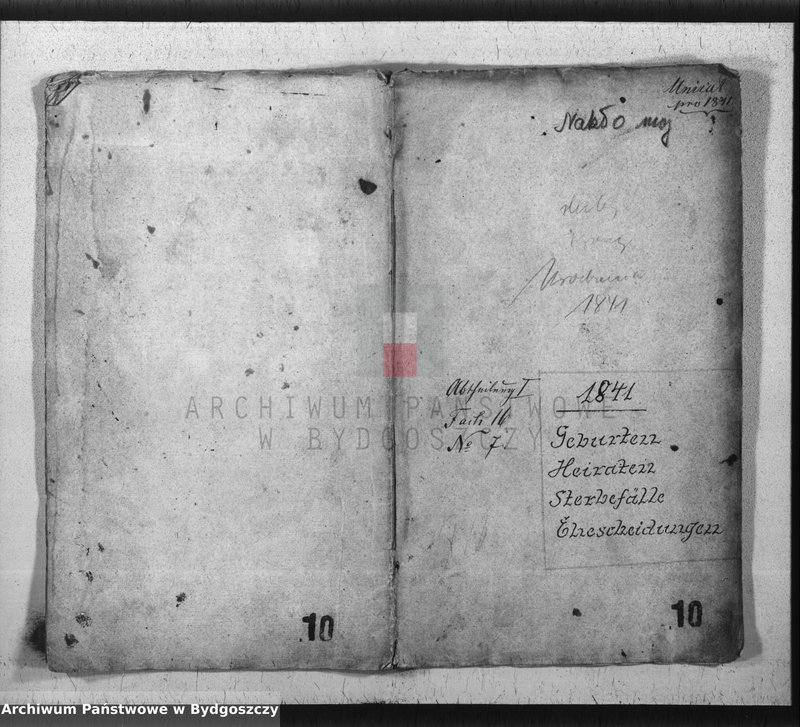 Unicat
pro 1841
Nakło moj
Urodzenia
1841
Abtheilung I
Fach 16
No 7.
1841
Geburten
Heiraten
Sterbefälle
Ehescheidungen
ARCHIWUM PAŃSTWOWE
W BYDGOSZCZY
10
10
Archiwum Państwowe w Bydgoszczy